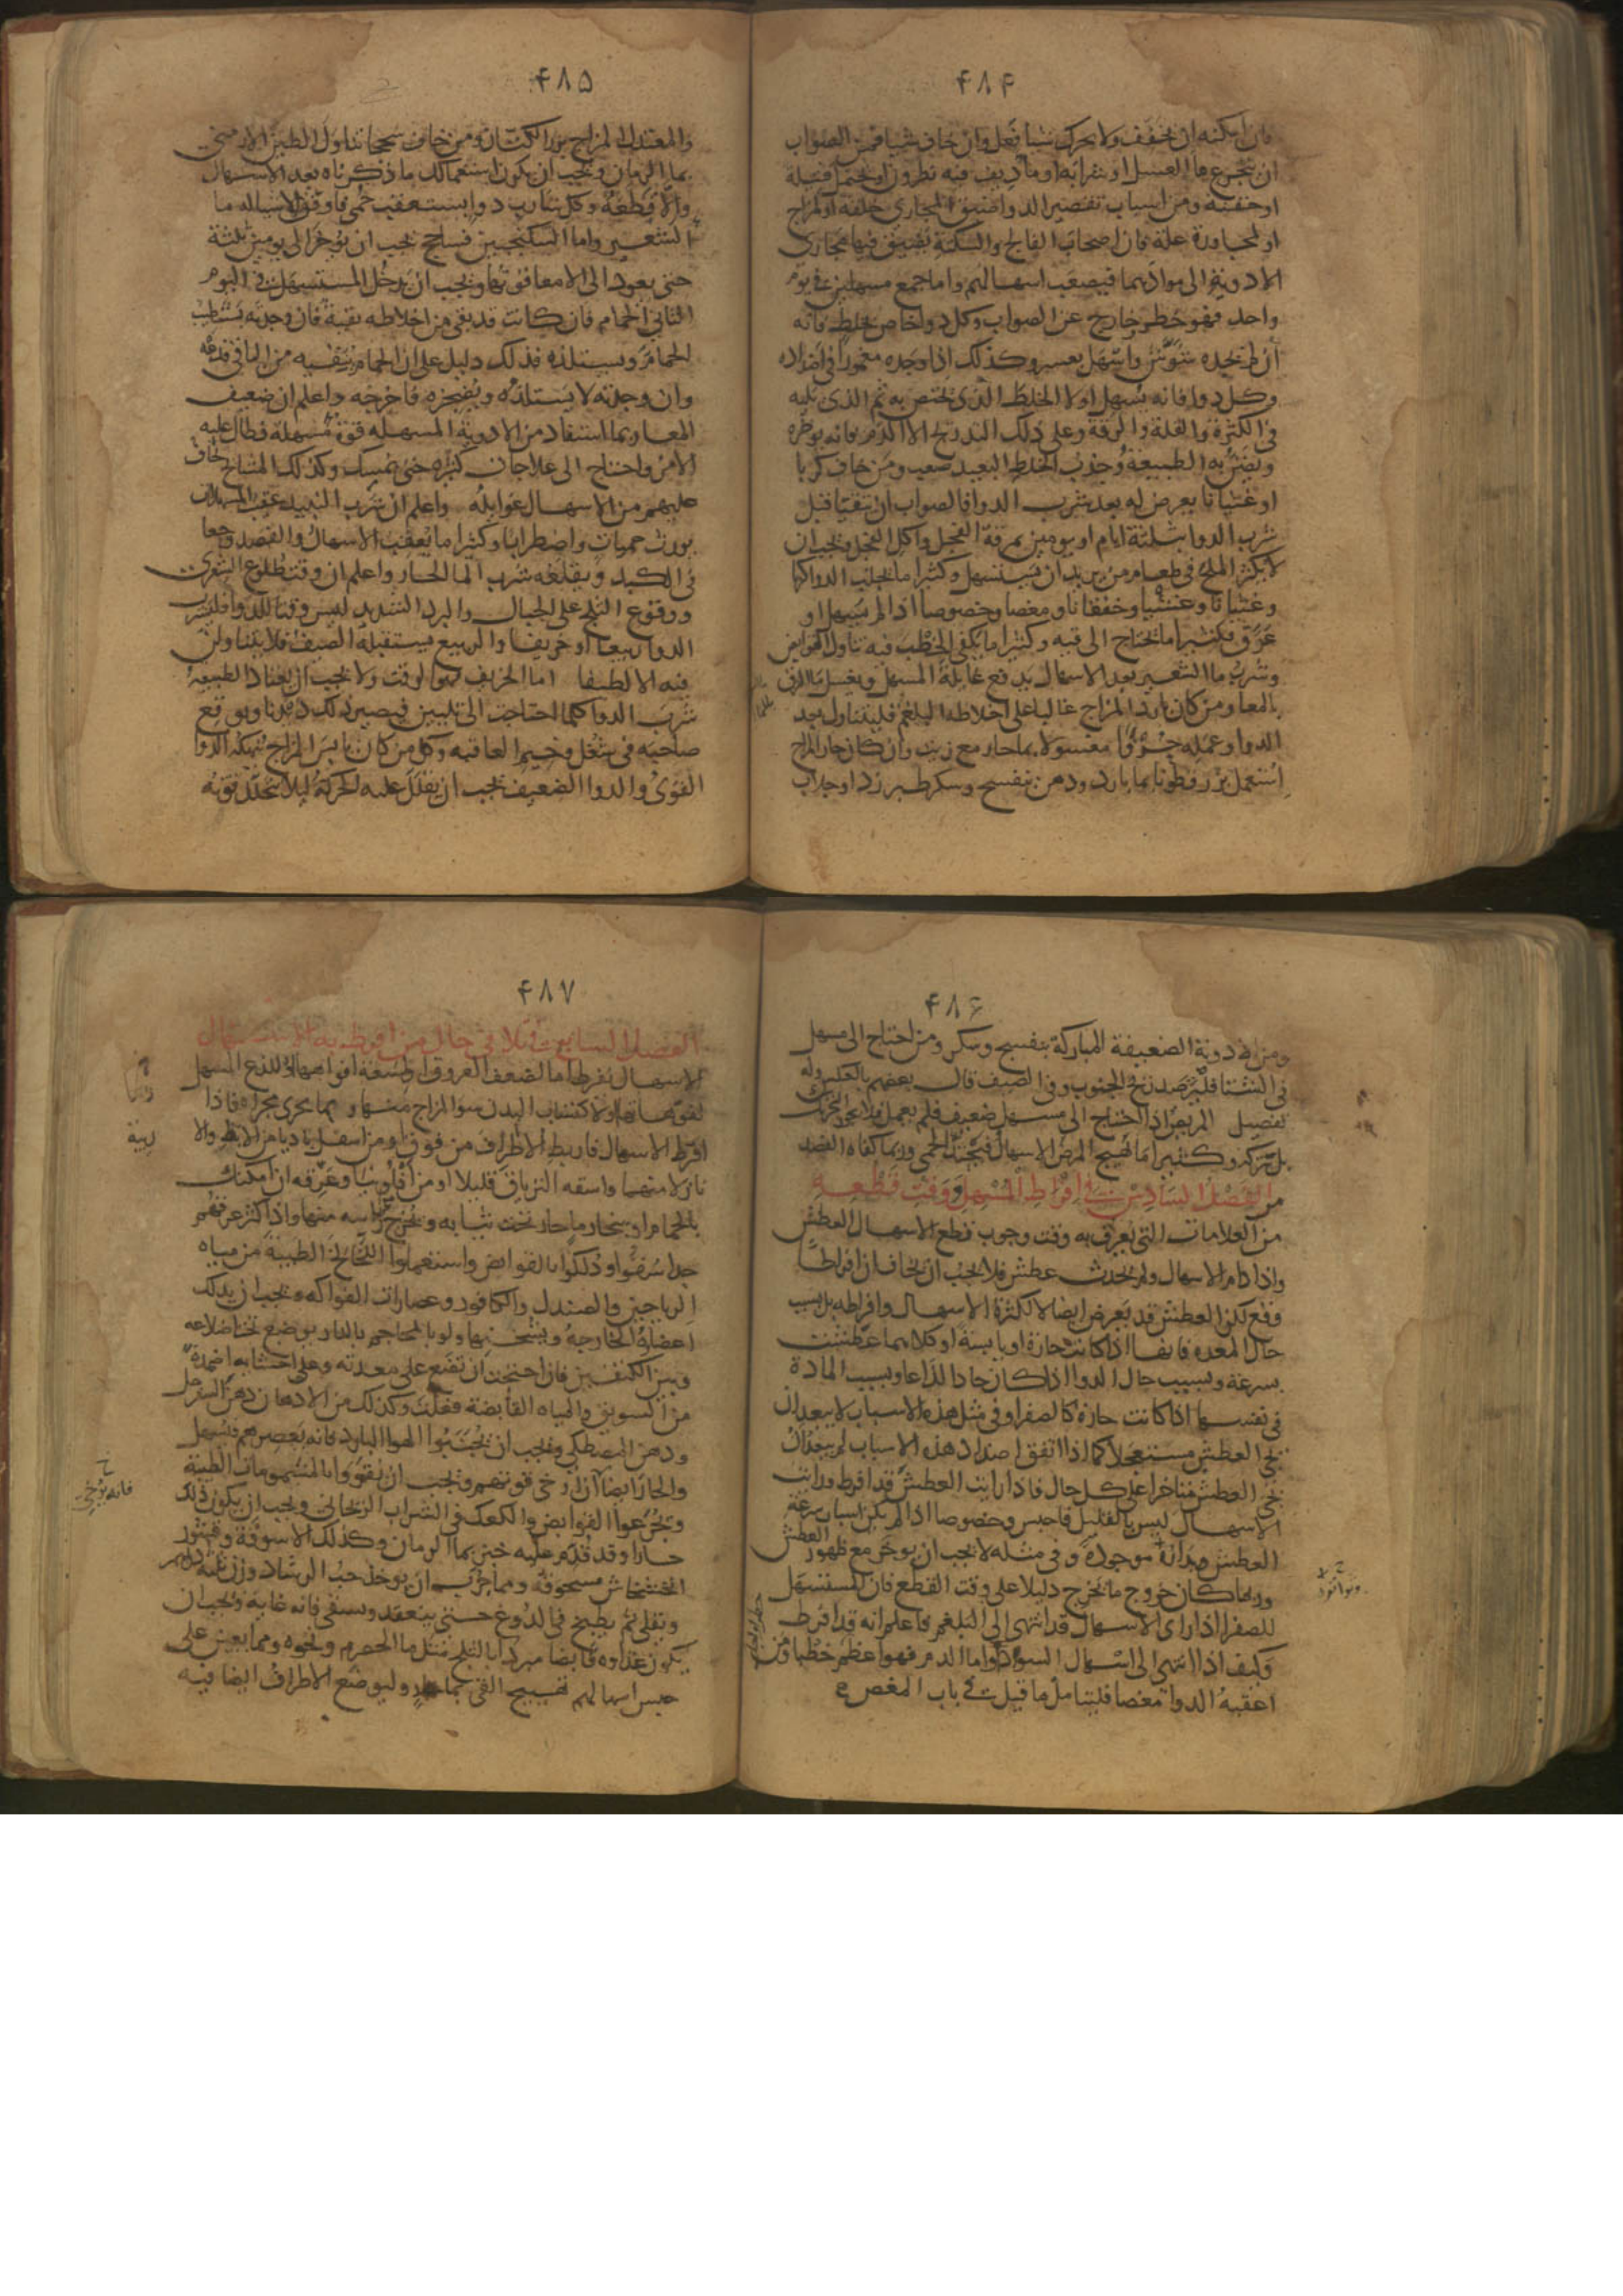 ۴۸۴
فان امكنه ان يخفف ولا يحرك شيا فعل وان خاف شيا فمن الصواب
ان يتجرع ما العسل او شرابه او ما ديف فيه نطرون او يحتمل فتيلة
او حقنة ومن اسباب تقصير الدوا ضيق المجاري خلقة او لمزاج
او لمجاورة علة فان اصحاب الفالج والسكتة يضيق فيها مجاري
الادوية الى موادهما فيصعب اسهالهم واما جمع مسهلين في يوم
واحد فهو خطر خارج عن الصواب وكل دوا خاص بخلط فانه
ان لم يجده شوش واسهل بعسر وكذلك اذا وجده مغمورا في اضداده
وكل دوا فانه يسهل اولا الخلط الذي يختص به ثم الذي يليه
في الكثرة والقلة والرقة وعلى ذلك التدريج الا الدم فانه يوخره
ويضن به الطبيعة وجذب الخلط البعيد صعب ومن خاف كربا
او غثيانا يعرض له بعد شرب الدوا فالصواب ان يتقيا قبل
شرب الدوا بثلثة ايام او يومين بمرقة الفجل واكل الفجل ويجب ان
لا يكثر الملح في طعام من يريد ان يستسهل وكثيرا ما يجلب الدوا كربا
وغثيانا وغشيا وخفقانا ومغصا وخصوصا اذا لم يسهل او
عوق فكثيرا ما يحتاج الى قيه وكثيرا ما يكفي الخطب فيه تناول القوابض
وشرب ما الشعير بعد الاسهال يدفع غايلة المسهل ويغسل ما التزق
بالمعا ومن كان بارد المزاج غالبا على اخلاطه البلغم فليتناول بعد
الدوا وعمله حرفا مغسولا بما حار مع زيت وان كان حار المزاج
استعمل بزر قطونا بما بارد ودهن بنفسج وسكر طبرزد او جلاب
۴۸۵
والمعتدل المزاج بزر الكتان ومن خاف سحجا تناول الطين الارمني
بما الرمان ويجب ان يكون استعمالك ما ذكرناه بعد الاسهال
والا قطعه وكل شارب دوا يستعقب حمى فاوفق الاشيا له ما
الشعير واما السكنجبين فساحج يجب ان يوخر الى يومين ثلثة
حتى يعود الى الامعا قوتها ويجب ان يدخل المستسهل في اليوم
الثاني الحمام فان كانت قد بقي من اخلاطه بقية فان وجدته يستطيب
الحمام ويستلذه فذلك دليل على ان الحمام ينقيه من الباقي فدعه
وان وجدته لا يستلذه ويضجره فاخرجه واعلم ان ضعيف
المعا ربما استفاد من الادوية المسهلة قوة مسهلة فطال عليه
الامر واحتاج الى علاجات كثيرة حتى يمسك وكذلك المشايخ يخاف
عليهم من الاسهال غوايله واعلم ان شرب النبيذ عقيب المسهلات
يورث حميات واضطرابا وكثيرا ما يعقب الاسهال والفصد وجعا
في الكبد ويقلعه شرب الما الحار واعلم ان وقت طلوع الشعرى
ووقوع الثلج على الجبال والبرد الشديد ليس وقتا للدوا فليشرب
الدوا ربيعا او خريفا والربيع يستقبله الصيف فلا يتناولن
فيه الا لطيفا اما الخريف فهو الوقت ولا يجب ان يعتاد الطبيعة
شرب الدوا كلما احتاجت الى تليين فيصير ذلك ديدنا ويوقع
صاحبه في شغل وخيم العاقبة وكل من كان يابس المزاج ينهكه الدوا
القوي والدوا الضعيف يجب ان يقلل عليه الحركة ليلا يتحلل قوته
۴۸۶
ومن الادوية الضعيفة المباركة بنفسج وسكر ومن احتاج الى مسهل
في الشتا فليرصد ريح الجنوب وفي الصيف قال بعضهم بالعكس وله
تفصيل المريض اذا احتاج الى مسهل ضعيف فلم يعمل فلا يجوز التحريك
بل يترك وكثيرا ما يهيج المرض الاسهال فيحدث الحمى وربما كفاه الفصد
الفصل السادس في افراط المسهل ووقت قطعه
من العلامات التي يعرف به وقت وجوب قطع الاسهال العطش
واذا دام الاسهال ولم يحدث عطش فلا يجب ان يخاف ان افراطا
وقع لكن العطش قد يعرض ايضا لا لكثرة الاسهال وافراطه بل بسبب
حال المعدة فانها اذا كانت حارة او يابسة او كلاهما عطشت
بسرعة وبسبب حال الدوا اذا كان حادا لذاعا وبسبب المادة
في نفسها اذا كانت حارة كالصفرا وفي مثل هذه الاسباب لا يبعد ان
يجي العطش مستعجلا كما اذا اتفق اضداد هذه الاسباب لم يبعد ان
يجي العطش متاخرا على كل حال فاذا رايت العطش قد افرط ورايت
الاسهال ليس بالقليل فاحبس وخصوصا اذا لم يكن اسباب سرعة
العطش وبداره موجودة وفي مثله لا يجب ان يوخر مع ظهور العطش
وربما كان خروج ما يخرج دليلا على وقت القطع فان المستسهل
للصفرا اذا راى الاسهال قد انتهى الى البلغم فاعلم انه قد افرط
وكيف اذا انتهى الى اسهال السودا واما الدم فهو اعظم خطبا ومن
اعقبه الدوا مغصا فليتامل ما قيل في باب المغص
۴۸۷
الفصل السابع في تلافي حال من افرط به الاسهال
الاسهال يفرط اما لضعف العروق او لسعة افواهها او للذع المسهل
لفوهاتها ولاكتساب البدن سو المزاج منها وما يجري مجراه فاذا
افرط الاسهال فاربط الاطراف من فوق ومن اسفل باديا من الابط والا
نازلا منهما واسقه الترياق قليلا او من افلونيا وعرقه ان امكنك
بالحمام او ببخار ما حار تحت ثيابه ويخرج راسه منها واذا كثر عرقهم
جدا سقوا ودلكوا بالقوابض واستعملوا اللخالخ الطيبة من مياه
الرياحين والصندل والكافور وعصارات الفواكه ويجب ان يدلك
اعضاه الخارجة ويسخنها ولو بالمحاجم بالنار بوضع تحت اضلاعه
وبين الكتفين فان احتجت ان تضع على معدته وعلى احشايه اضمدة
من السويق والمياه القابضة فعلت وكذلك من الادهان دهن السفرجل
ودهن المصطكي ويجب ان يجتنبوا الهوا البارد فانه يعصرهم فيسهل
والحار ايضا ارخى قوتهم ويجب ان يقووا بالمشمومات الطيبة
ويجرعوا القوابض والكعك في الشراب الريحاني ويجب ان يكون ذلك
حارا وقد قدم عليه خبز بما الرمان وكذلك الاسوقة وقشور
الخشخاش مسحوقة ومما جرب ان يوخذ حب الرشاد وزن ثلثة دراهم
ويقلى ثم يطبخ في الدوغ حتى ينعقد ويسقى فانه غاية ويجب ان
يكون غذاوه قابضا مبردا بالثلج مثل ما الحصرم ونحوه ومما يعين على
حبس اسهالهم تهييج القي بما حار وليوضع الاطراف ايضا فيه
فانه يرخي